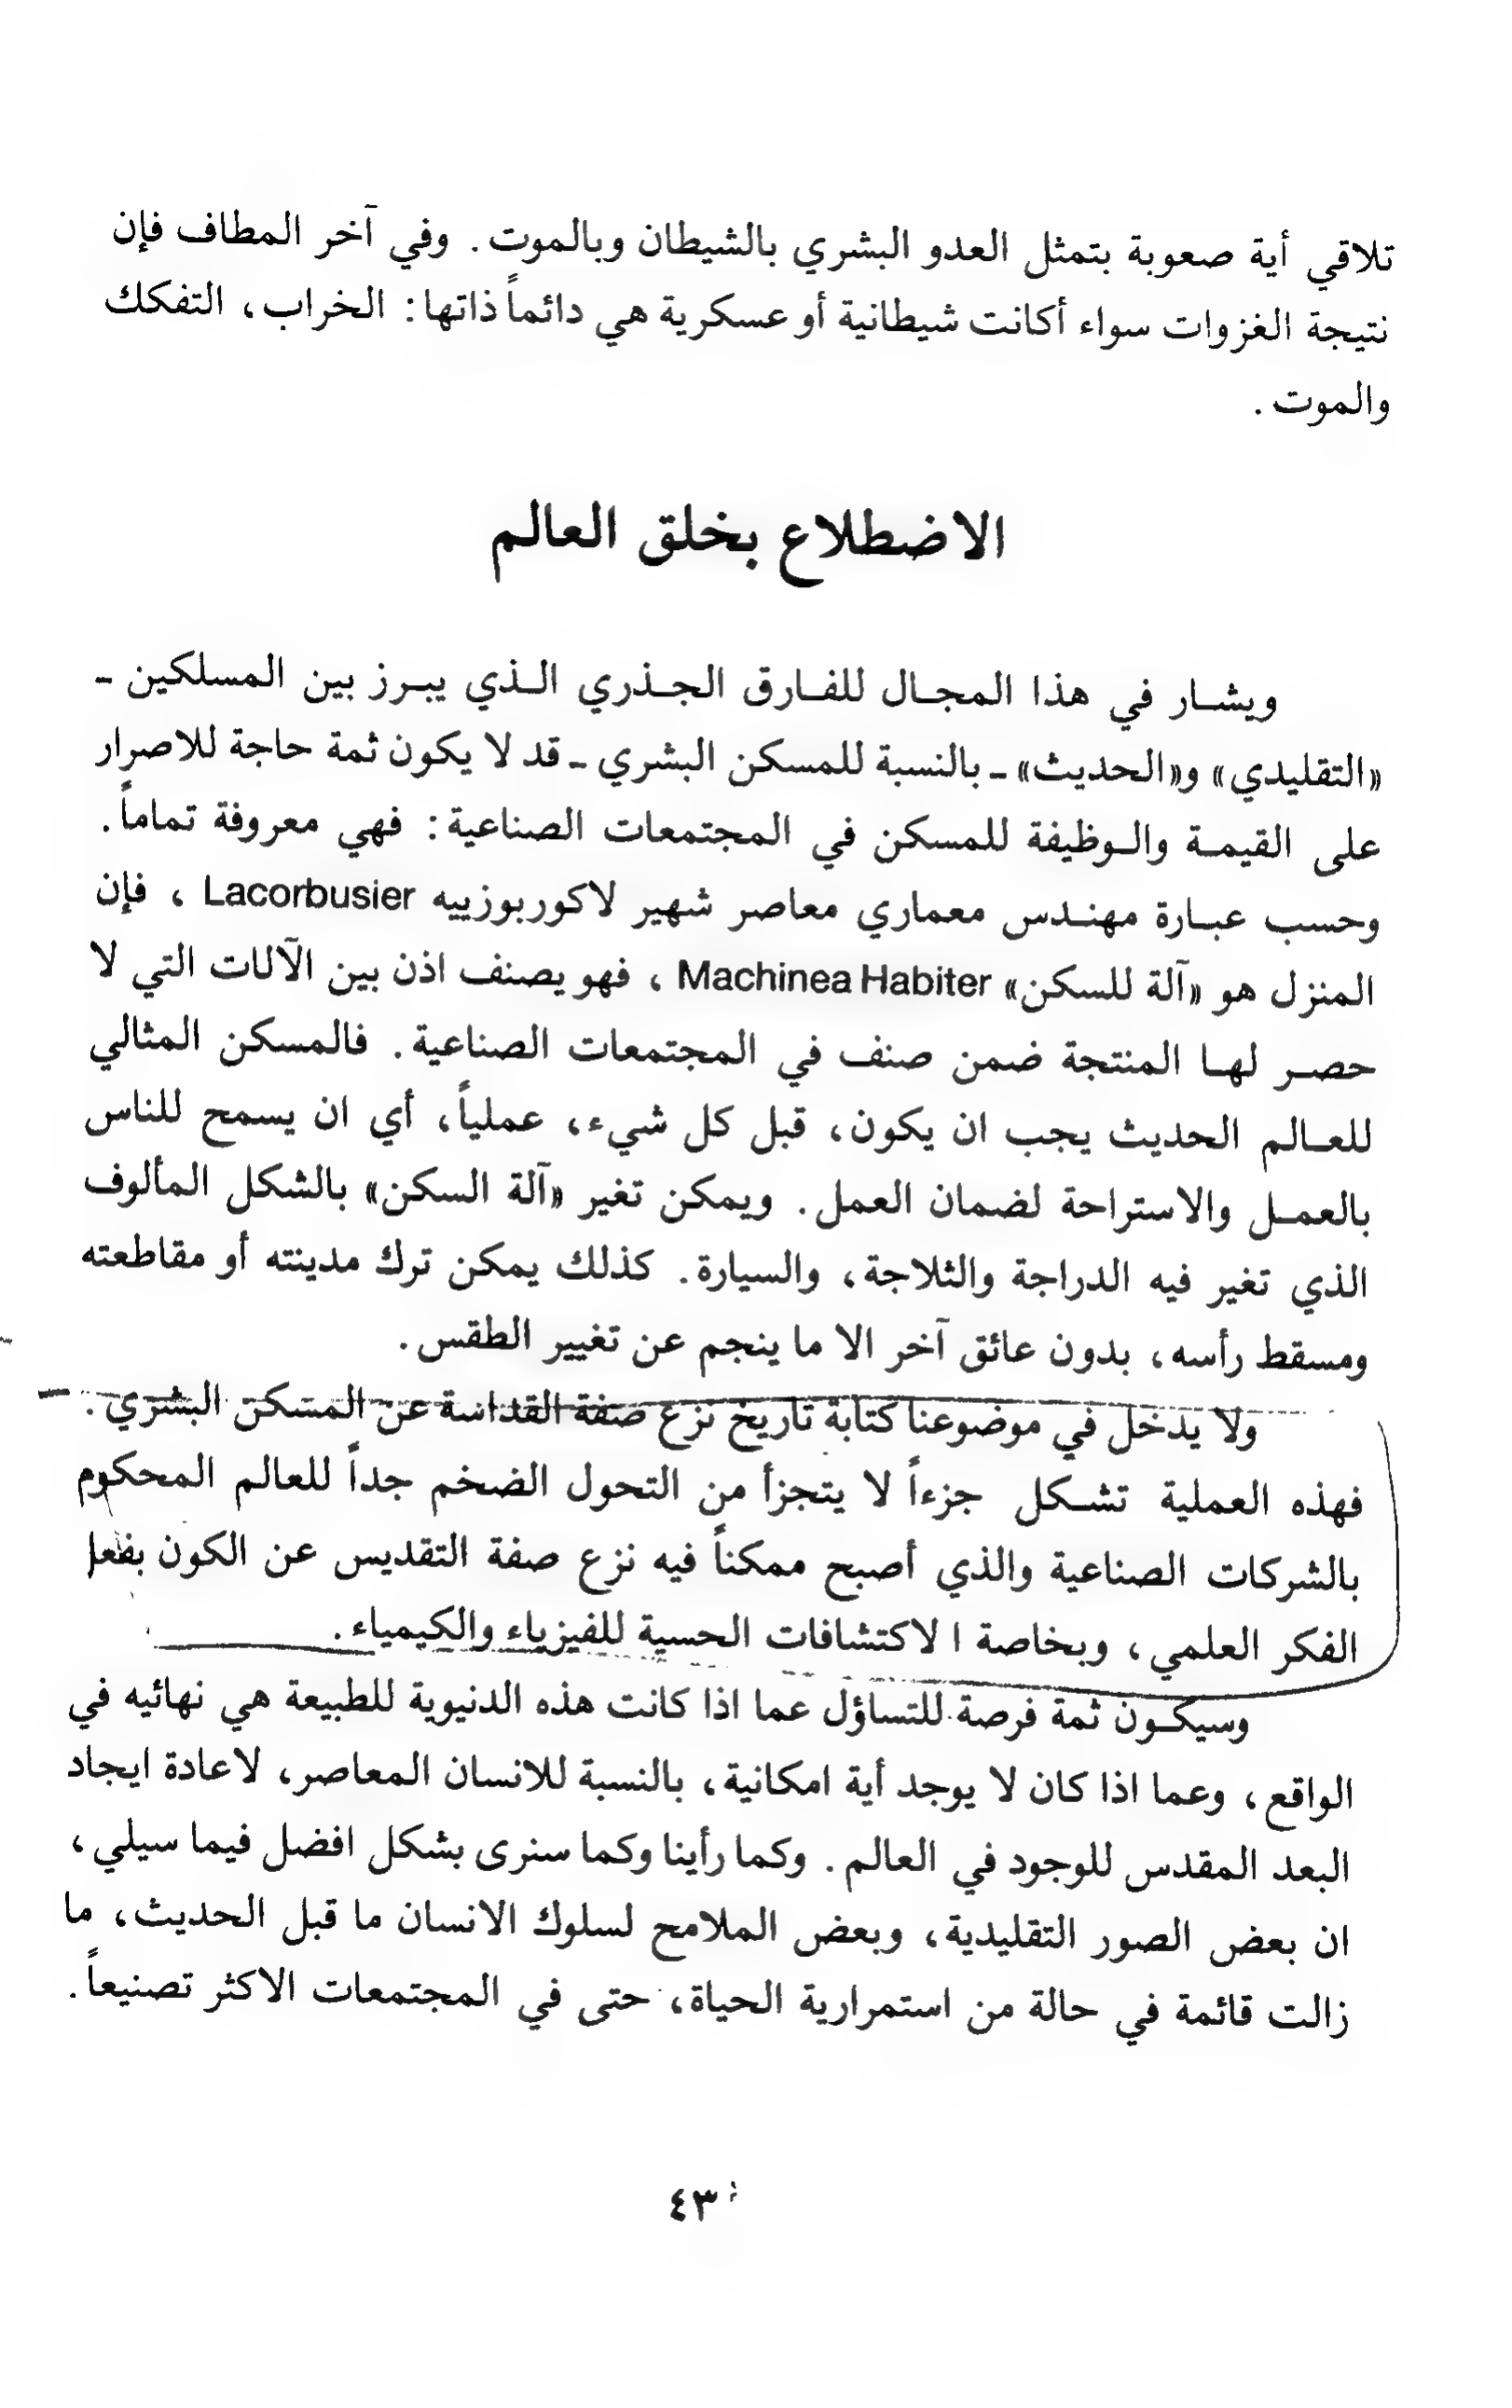 تلاقي أية صعوبة بتمثل العدو البشري بالشيطان وبالموت. وفي آخر المطاف فإن
نتيجة الغزوات سواء أكانت شيطانية أو عسكرية هي دائماً ذاتها: الخراب، التفكك
والموت.
الاضطلاع بخلق العالم
ويشـار في هذا المجـال للفـارق الجـذري الـذي يبـرز بين المسلكين -
«التقليدي» و«الحديث» - بالنسبة للمسكن البشري - قد لا يكون ثمة حاجة للاصرار
على القيمـة والـوظيفة للمسكن في المجتمعات الصناعية: فهي معروفة تماماً.
وحسب عبـارة مهنـدس معماري معاصر شهير لاكوربوزييه Lacorbusier ، فإن
المنزل هو «آلة للسكن» Machinea Habiter ، فهو يصنف اذن بين الآلات التي لا
حصـر لهـا المنتجة ضمن صنف في المجتمعات الصناعية. فالمسكن المثالي
للعـالم الحديث يجب ان يكون، قبل كل شيء، عملياً، أي ان يسمح للناس
بالعمـل والاستراحة لضمان العمل. ويمكن تغير «آلة السكن» بالشكل المألوف
الذي تغير فيه الدراجة والثلاجة، والسيارة. كذلك يمكن ترك مدينته أو مقاطعته
ومسقط رأسه، بدون عائق آخر الا ما ينجم عن تغيير الطقس.
ولا يدخل في موضوعنا كتابة تاريخ نزع صفة القداسة عن المسكن البشري.
فهذه العملية تشـكل جزءاً لا يتجزأ من التحول الضخم جداً للعالم المحكوم
بالشركات الصناعية والذي أصبح ممكناً فيه نزع صفة التقديس عن الكون بفعل
الفكر العلمي، وبخاصة ا لاكتشافات الحسية للفيزياء والكيمياء.
وسيكـون ثمة فرصة للتساؤل عما اذا كانت هذه الدنيوية للطبيعة هي نهائيه في
الواقع، وعما اذا كان لا يوجد أية امكانية، بالنسبة للانسان المعاصر، لاعادة ايجاد
البعد المقدس للوجود في العالم. وكما رأينا وكما سنرى بشكل افضل فيما سيلي،
ان بعض الصور التقليدية، وبعض الملامح لسلوك الانسان ما قبل الحديث، ما
زالت قائمة في حالة من استمرارية الحياة، حتى في المجتمعات الاكثر تصنيعاً.
٤٣